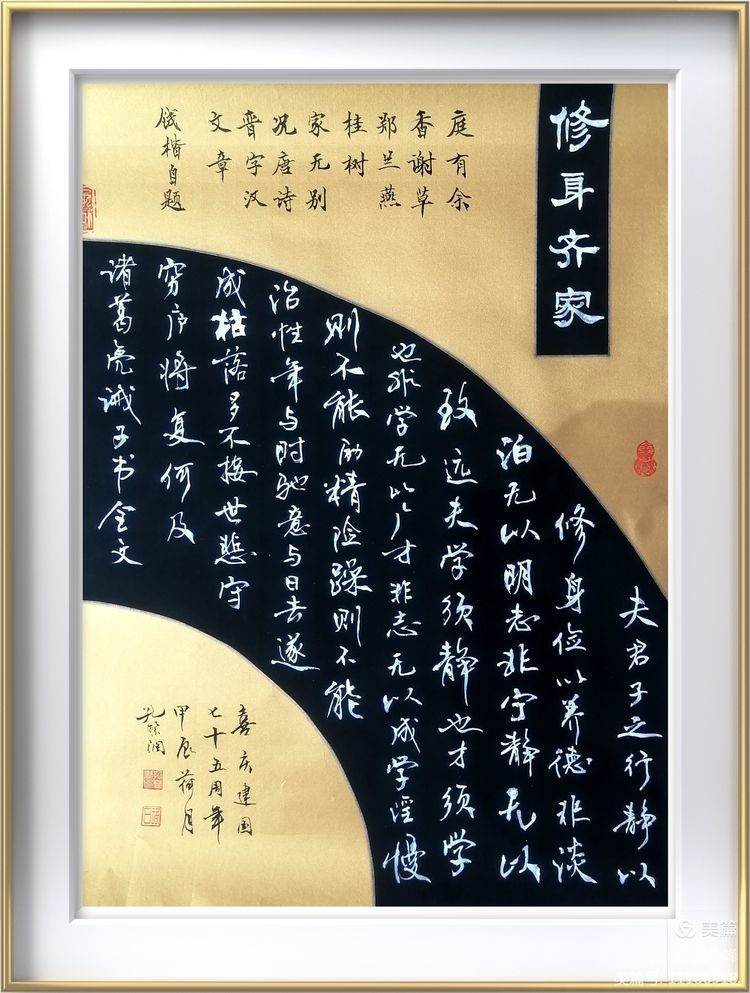 修身齐家
庭有余
香谢草
郑兰燕
桂树
家无别
况唐诗
晋字汉
文章
楷自题
夫君子之行静以
修身俭以养德非淡
泊无以明志非宁静无以
致远夫学须静也才须学
也非学无以广才非志无以成学淫慢
则不能励精险躁则不能
治性年与时驰意与日去遂
成枯落多不接世悲守
穷庐将复何及
诸葛亮诫子书全文
喜庆建国
七十五周年
甲辰荷月
美篇